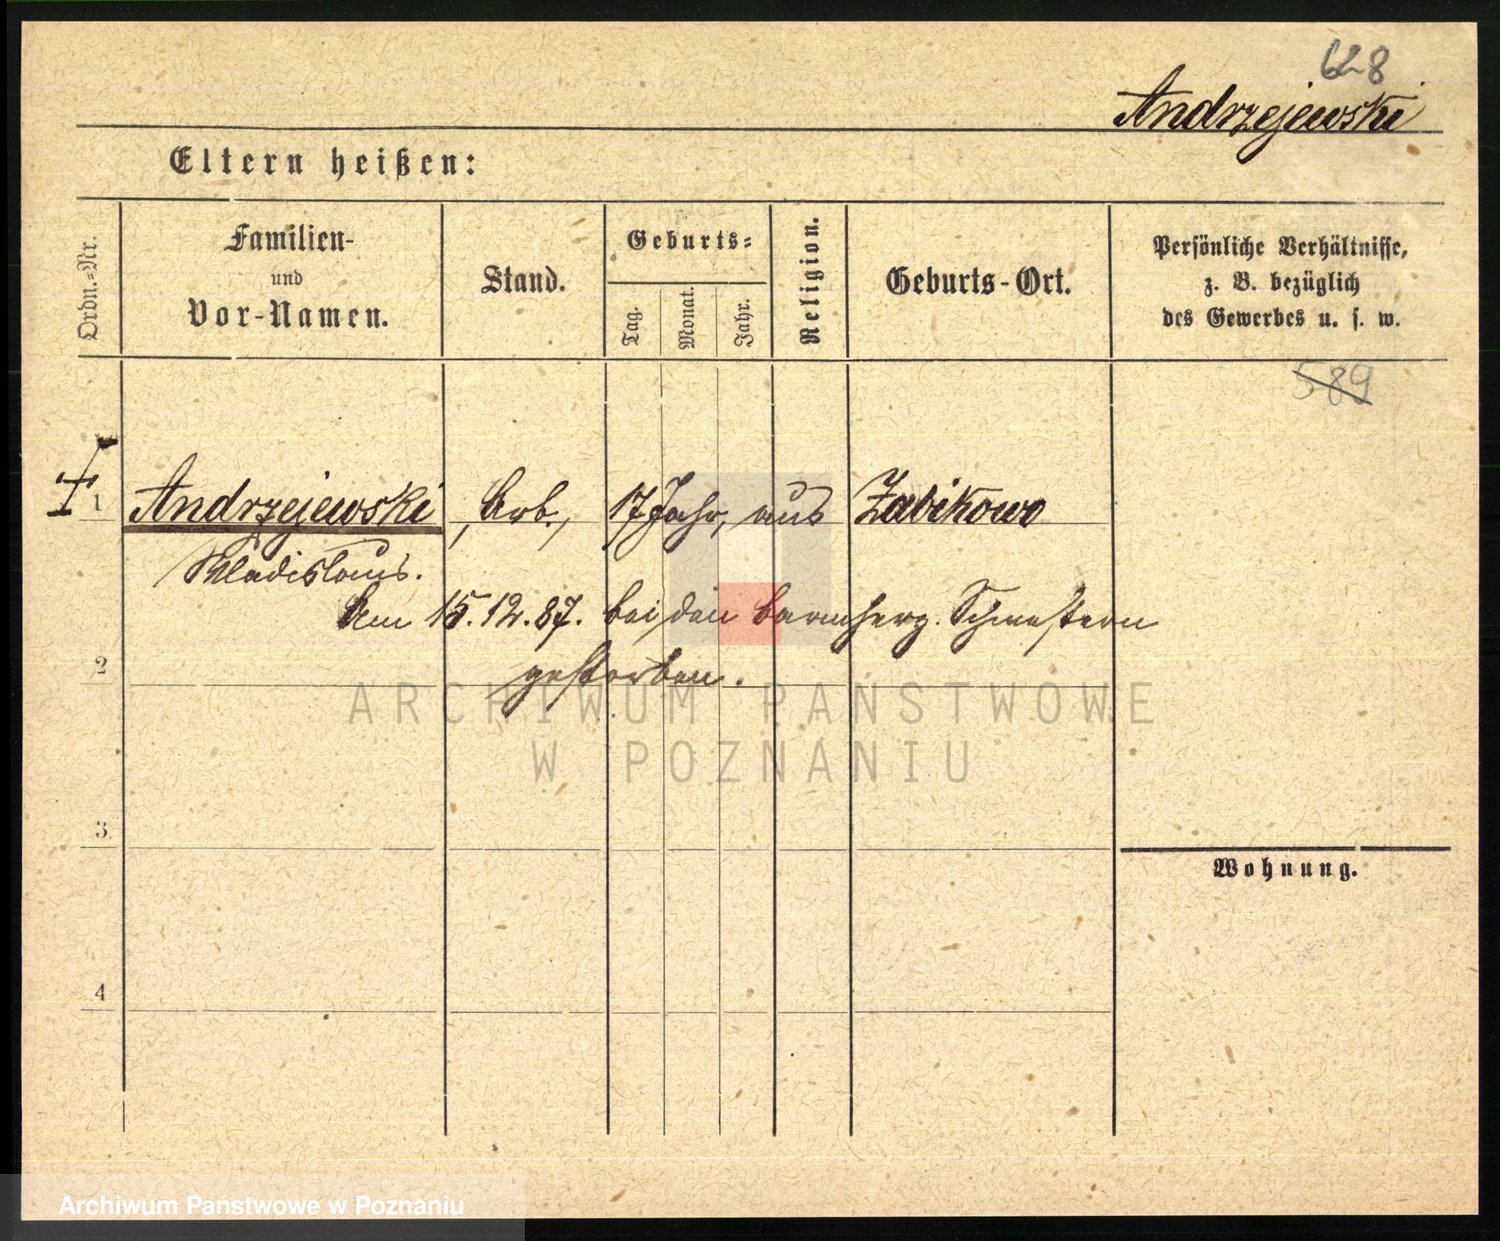 628
Andrzejewski
Eltern heißen:
Ordn.-Nr.
Familien-
und
Vor-Namen.
Stand.
Geburts-
Tag.
Monat.
Jahr.
Religion.
Geburts-Ort.
Persönliche Verhältnisse,
z. B. bezüglich
des Gewerbes u. s. w.
589
1 Andrzejewski, Arb., 17 Jahr, aus Zabikowo
Wladislaus.
Am 15.12.87. bei den barmherz. Schwestern
2 gestorben.
ARCHIWUM PAŃSTWOWE
W POZNANIU
3
Wohnung.
4
Archiwum Państwowe w Poznaniu